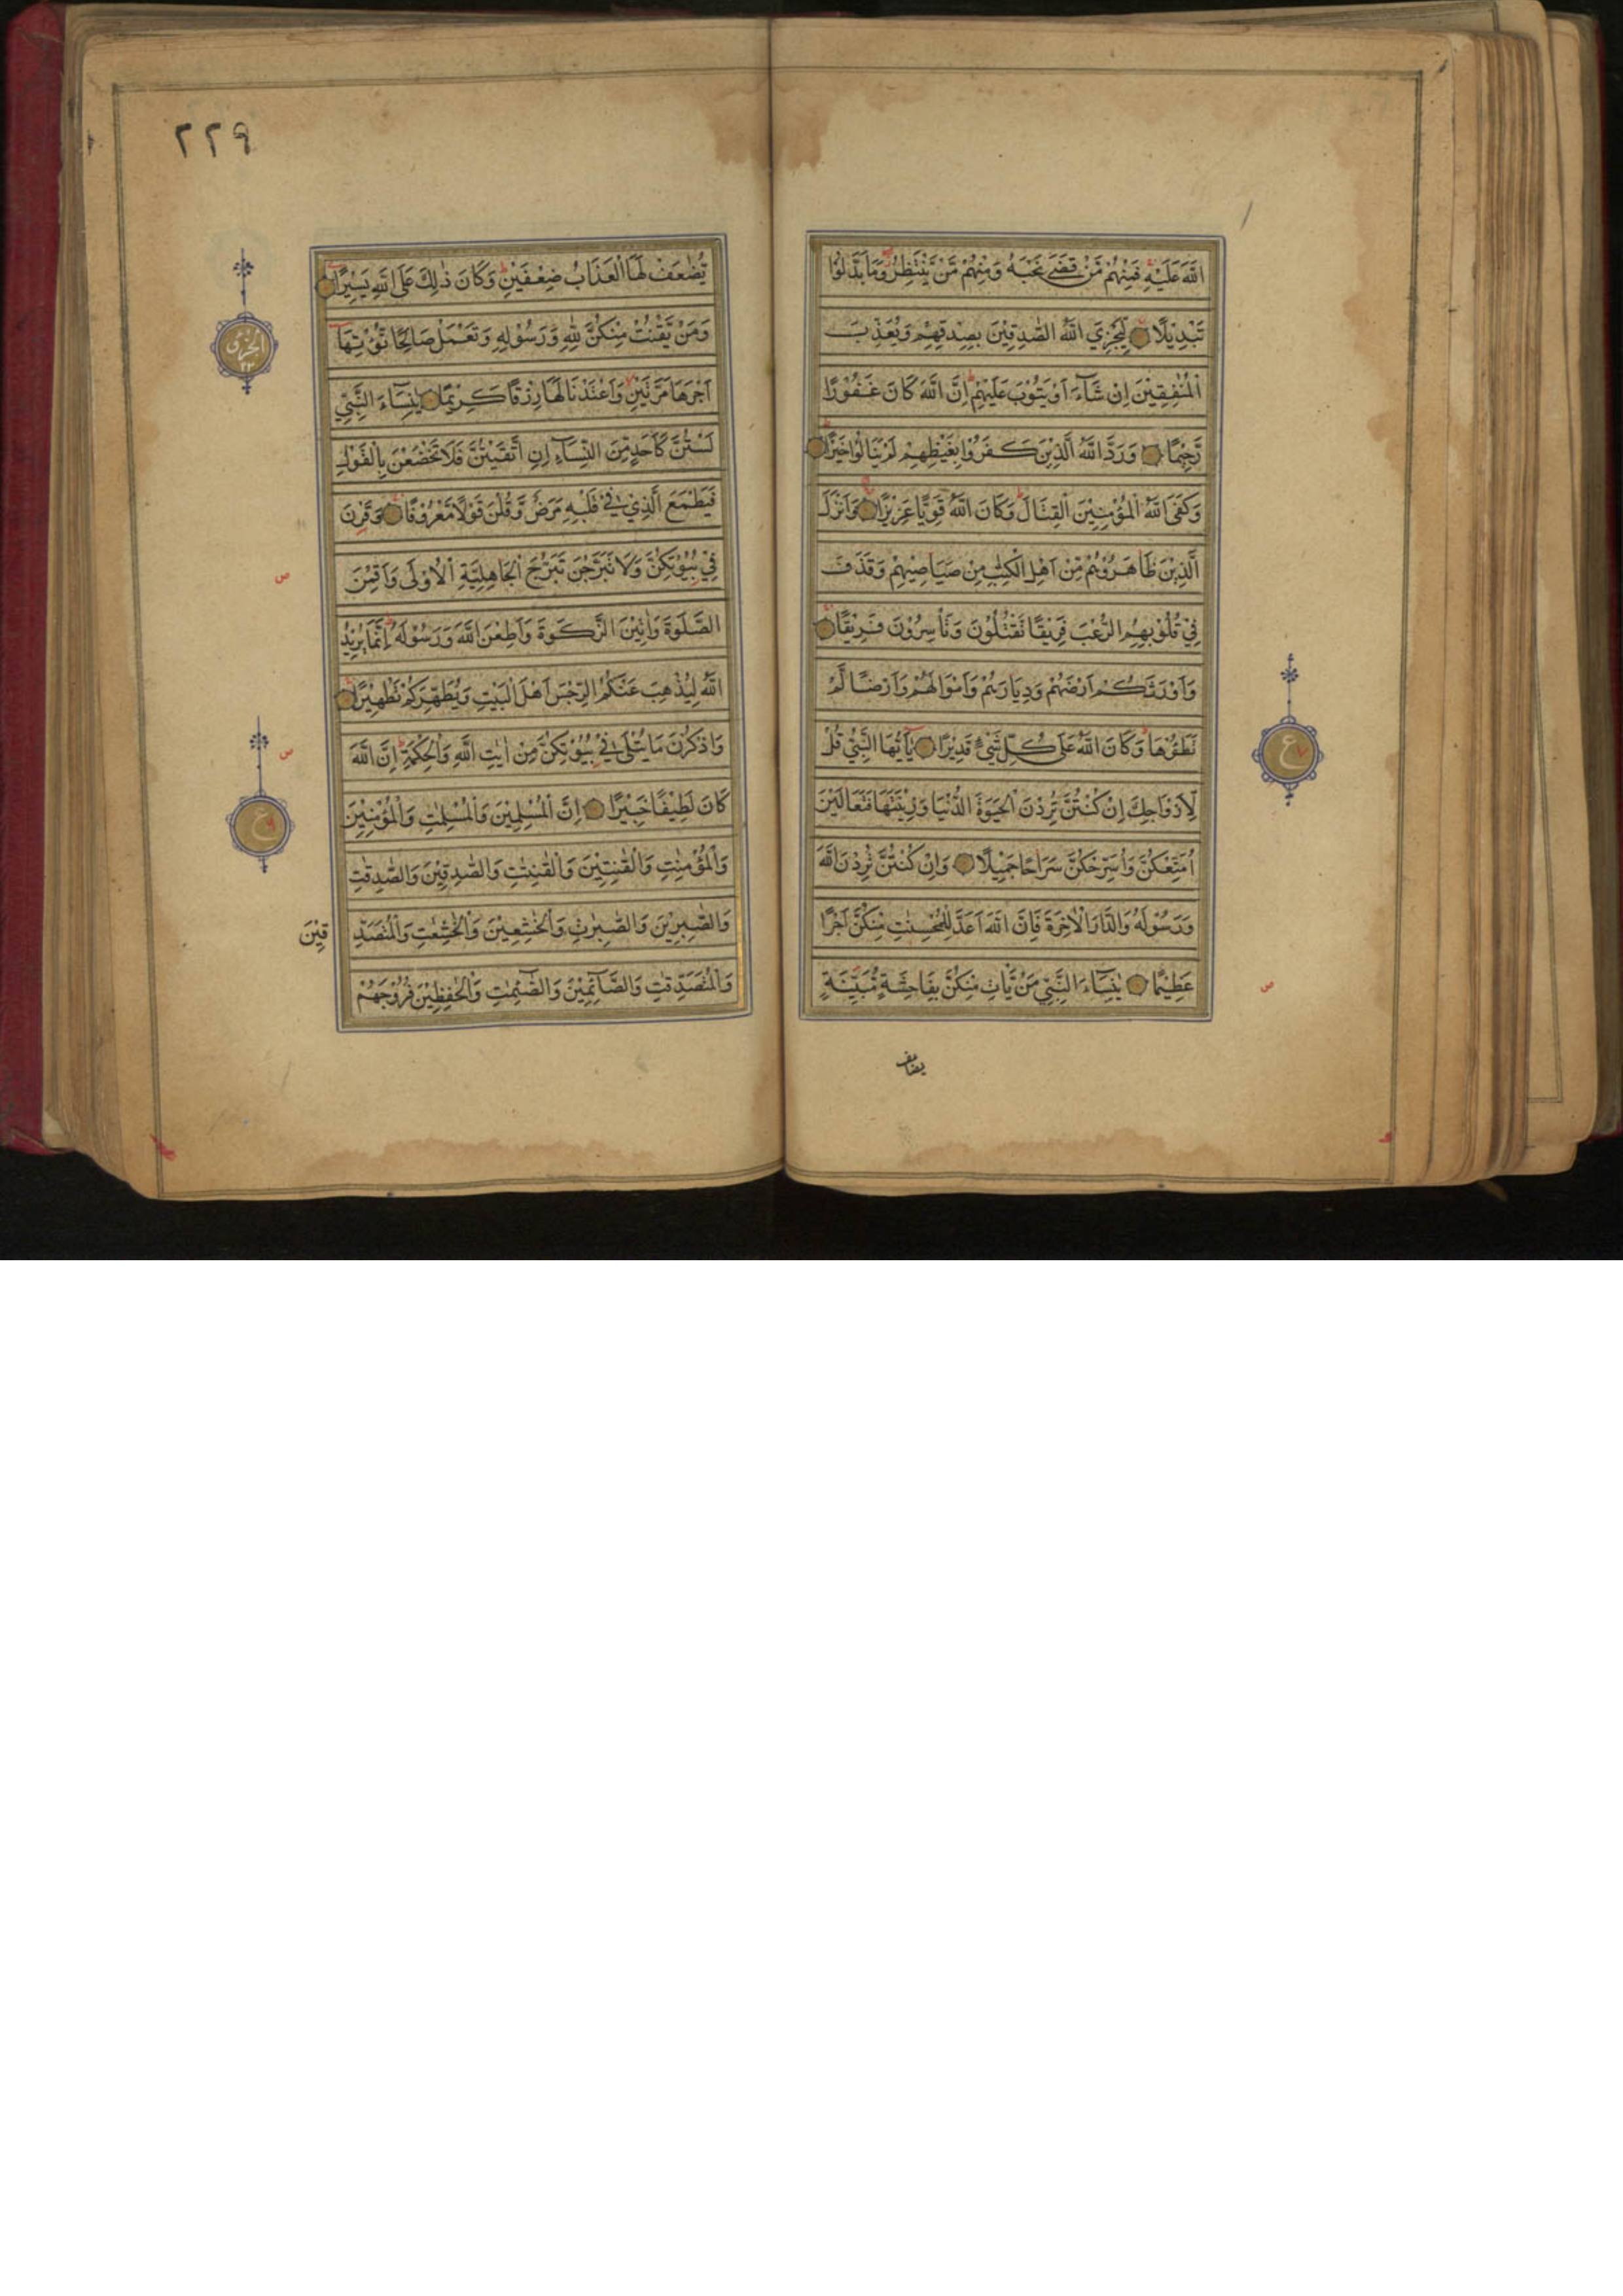 اللّٰهَ عَلَيْهِ فَمِنْهُمْ مَّنْ قَضٰى نَحْبَهٗ وَمِنْهُمْ مَّنْ يَّنْتَظِرُ وَمَا بَدَّلُوْا
تَبْدِيْلًا لِّيَجْزِيَ اللّٰهُ الصّٰدِقِيْنَ بِصِدْقِهِمْ وَيُعَذِّبَ
الْمُنٰفِقِيْنَ اِنْ شَآءَ اَوْ يَتُوْبَ عَلَيْهِمْ اِنَّ اللّٰهَ كَانَ غَفُوْرًا
رَّحِيْمًا وَرَدَّ اللّٰهُ الَّذِيْنَ كَفَرُوْا بِغَيْظِهِمْ لَمْ يَنَالُوْا خَيْرًا
وَكَفَى اللّٰهُ الْمُؤْمِنِيْنَ الْقِتَالَ وَكَانَ اللّٰهُ قَوِيًّا عَزِيْزًا وَاَنْزَلَ
الَّذِيْنَ ظَاهَرُوْهُمْ مِّنْ اَهْلِ الْكِتٰبِ مِنْ صَيَاصِيْهِمْ وَقَذَفَ
فِيْ قُلُوْبِهِمُ الرُّعْبَ فَرِيْقًا تَقْتُلُوْنَ وَتَأْسِرُوْنَ فَرِيْقًا
وَاَوْرَثَكُمْ اَرْضَهُمْ وَدِيَارَهُمْ وَاَمْوَالَهُمْ وَاَرْضًا لَّمْ
تَطَئُوْهَا وَكَانَ اللّٰهُ عَلٰى كُلِّ شَيْءٍ قَدِيْرًا يٰٓاَيُّهَا النَّبِيُّ قُلْ
ع
لِّاَزْوَاجِكَ اِنْ كُنْتُنَّ تُرِدْنَ الْحَيٰوةَ الدُّنْيَا وَزِيْنَتَهَا فَتَعَالَيْنَ
اُمَتِّعْكُنَّ وَاُسَرِّحْكُنَّ سَرَاحًا جَمِيْلًا وَاِنْ كُنْتُنَّ تُرِدْنَ اللّٰهَ
وَرَسُوْلَهٗ وَالدَّارَ الْاٰخِرَةَ فَاِنَّ اللّٰهَ اَعَدَّ لِلْمُحْسِنٰتِ مِنْكُنَّ اَجْرًا
عَظِيْمًا يٰنِسَآءَ النَّبِيِّ مَنْ يَّأْتِ مِنْكُنَّ بِفَاحِشَةٍ مُّبَيِّنَةٍ
ص
يضاعف
٢٢٩
تُضٰعَفْ لَهَا الْعَذَابُ ضِعْفَيْنِ وَكَانَ ذٰلِكَ عَلَى اللّٰهِ يَسِيْرًا
الجزؤ
٢٢
وَمَنْ يَّقْنُتْ مِنْكُنَّ لِلّٰهِ وَرَسُوْلِهٖ وَتَعْمَلْ صَالِحًا نُّؤْتِهَا
اَجْرَهَا مَرَّتَيْنِ وَاَعْتَدْنَا لَهَا رِزْقًا كَرِيْمًا يٰنِسَآءَ النَّبِيِّ
لَسْتُنَّ كَاَحَدٍ مِّنَ النِّسَآءِ اِنِ اتَّقَيْتُنَّ فَلَا تَخْضَعْنَ بِالْقَوْلِ
فَيَطْمَعَ الَّذِيْ فِيْ قَلْبِهٖ مَرَضٌ وَّقُلْنَ قَوْلًا مَّعْرُوْفًا وَقَرْنَ
فِيْ بُيُوْتِكُنَّ وَلَا تَبَرَّجْنَ تَبَرُّجَ الْجَاهِلِيَّةِ الْاُوْلٰى وَاَقِمْنَ
ص
الصَّلٰوةَ وَاٰتِيْنَ الزَّكٰوةَ وَاَطِعْنَ اللّٰهَ وَرَسُوْلَهٗ اِنَّمَا يُرِيْدُ
اللّٰهُ لِيُذْهِبَ عَنْكُمُ الرِّجْسَ اَهْلَ الْبَيْتِ وَيُطَهِّرَكُمْ تَطْهِيْرًا
وَاذْكُرْنَ مَا يُتْلٰى فِيْ بُيُوْتِكُنَّ مِنْ اٰيٰتِ اللّٰهِ وَالْحِكْمَةِ اِنَّ اللّٰهَ
ص
كَانَ لَطِيْفًا خَبِيْرًا اِنَّ الْمُسْلِمِيْنَ وَالْمُسْلِمٰتِ وَالْمُؤْمِنِيْنَ
ع
وَالْمُؤْمِنٰتِ وَالْقٰنِتِيْنَ وَالْقٰنِتٰتِ وَالصّٰدِقِيْنَ وَالصّٰدِقٰتِ
وَالصّٰبِرِيْنَ وَالصّٰبِرٰتِ وَالْخٰشِعِيْنَ وَالْخٰشِعٰتِ وَالْمُتَصَدِّقِيْنَ
وَالْمُتَصَدِّقٰتِ وَالصَّآئِمِيْنَ وَالصّٰٓئِمٰتِ وَالْحٰفِظِيْنَ فُرُوْجَهُمْ